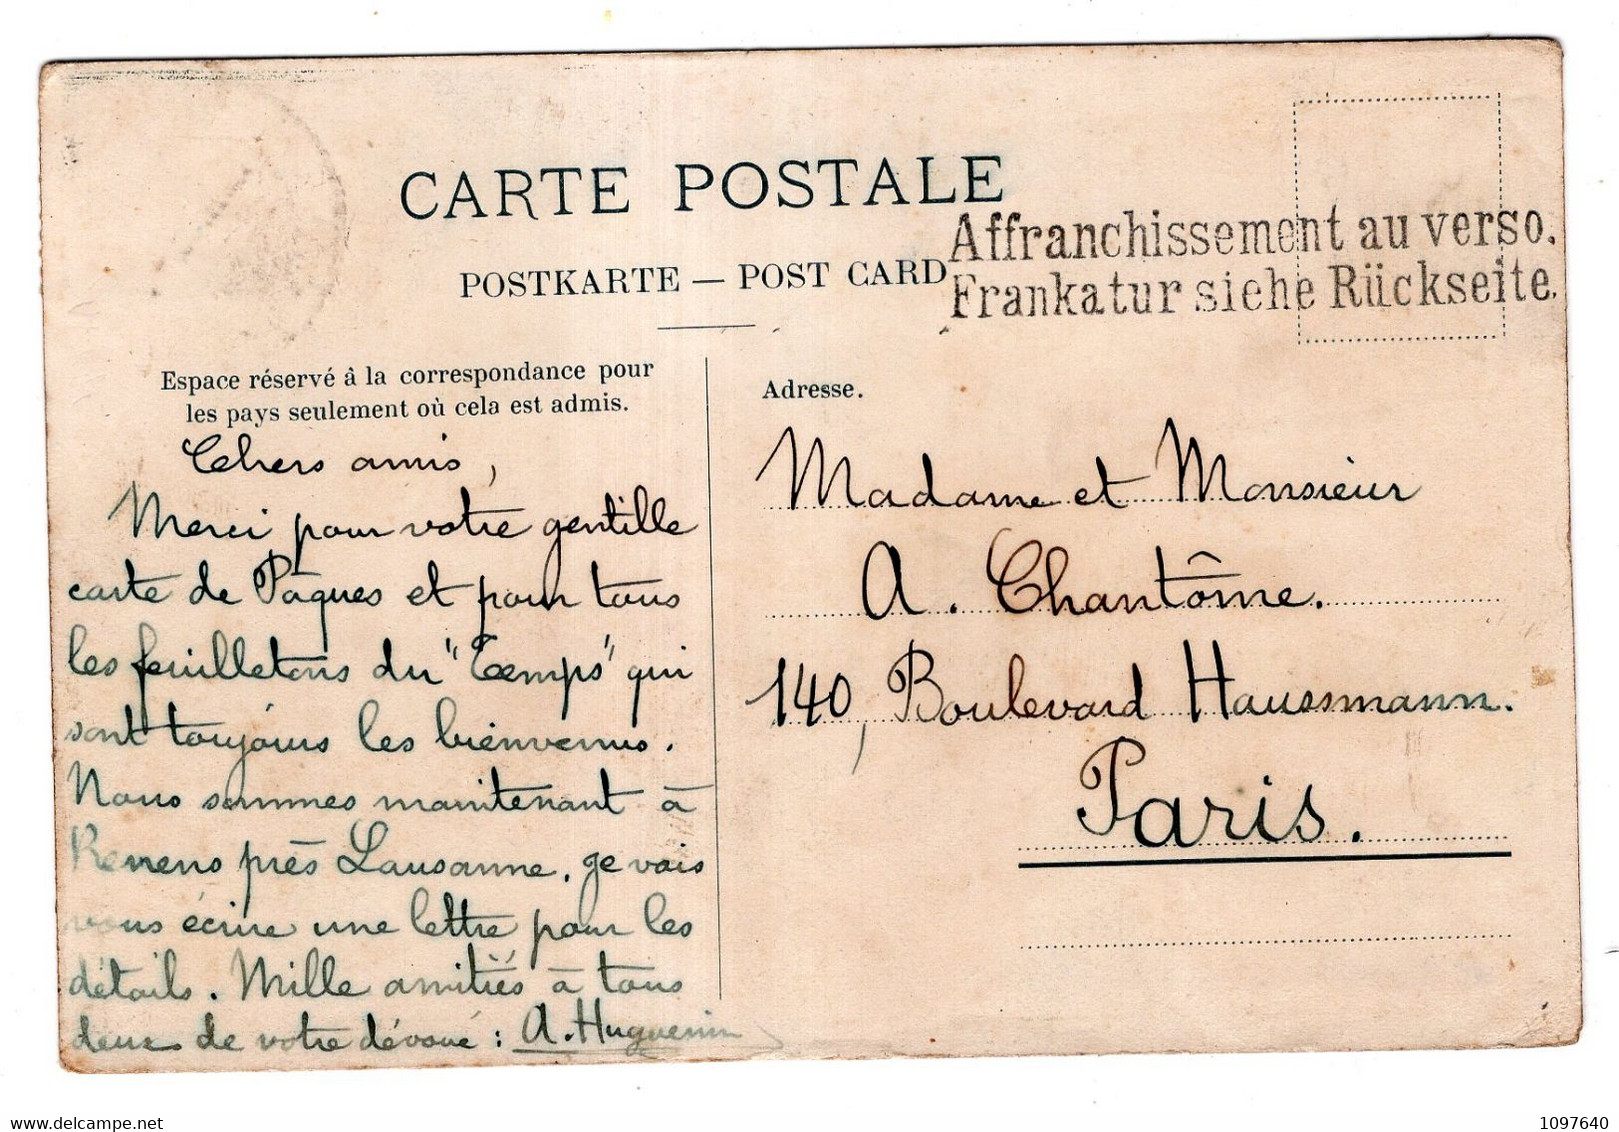 CARTE POSTALE
Affranchissement au verso.
Frankatur siehe Rückseite.
POSTKARTE — POST CARD
Espace réservé à la correspondance pour
les pays seulement où cela est admis.
Chers amis,
Merci pour votre gentille
carte de Pâques et pour tous
les feuilletons du "Temps" qui
sont toujours les bienvenus.
Nous sommes maintenant à
Renens près Lausanne, je vais
vous écrire une lettre pour les
détails. Mille amitiés à tous
deux de votre dévoué : A. Huguenin
Adresse.
Madame et Monsieur
A. Chantôme.
140, Boulevard Haussmann.
Paris.
delcampe.net
1097640